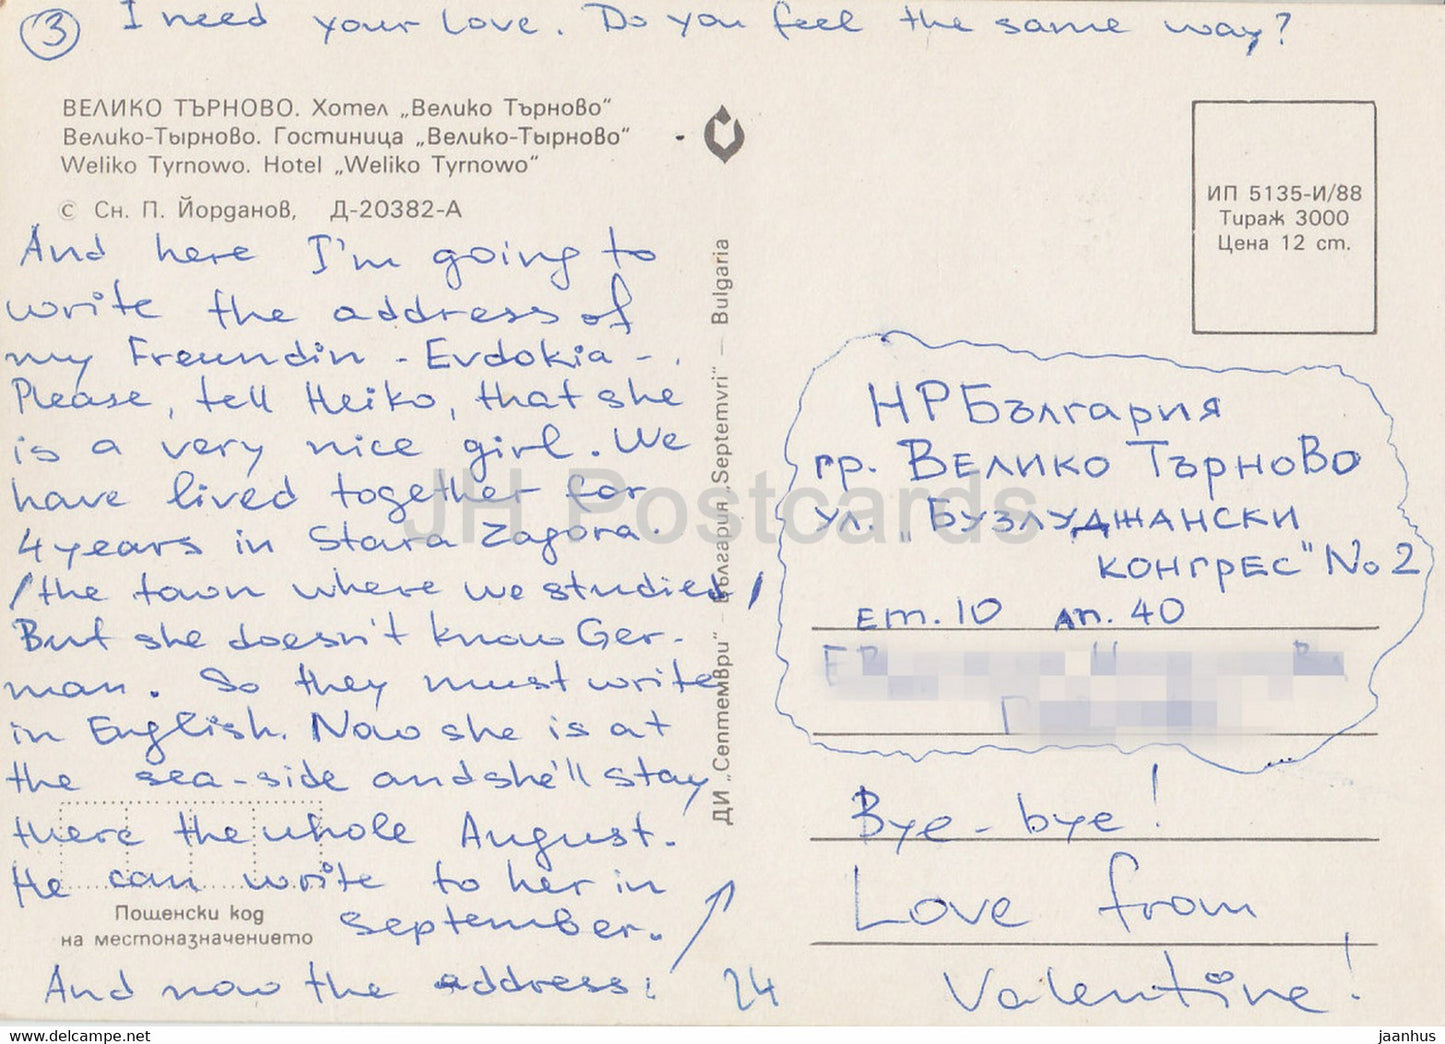 ③ I need your love. Do you feel the same way?
ВЕЛИКО ТЪРНОВО. Хотел „Велико Търново“
Велико-Тырново. Гостиница „Велико-Тырново“
Weliko Tyrnowo. Hotel „Weliko Tyrnowo“
© Сн. П. Йорданов, Д-20382-А
And here I'm going to
write the address of
my Freundin - Evdokia - .
Please, tell Heiko, that she
is a very nice girl. We
have lived together for
4 years in Stara Zagora.
/the town where we studied/
But she doesn't know Ger-
man. So they must write
in English. Now she is at
the sea-side and she'll stay
there the whole August.
He can write to her in
september.
Пощенски код
на местоназначението
And now the address:
24
ДИ „Септември“ — България „Septemvri“ — Bulgaria
ИП 5135-И/88
Тираж 3000
Цена 12 ст.
НР България
гр. Велико Търново
ул. „Бузлуджански
конгрес" No 2
ет. 10 ап. 40
Bye-bye!
Love from
Valentine!
JH Postcards
www.delcampe.net
jaanhus